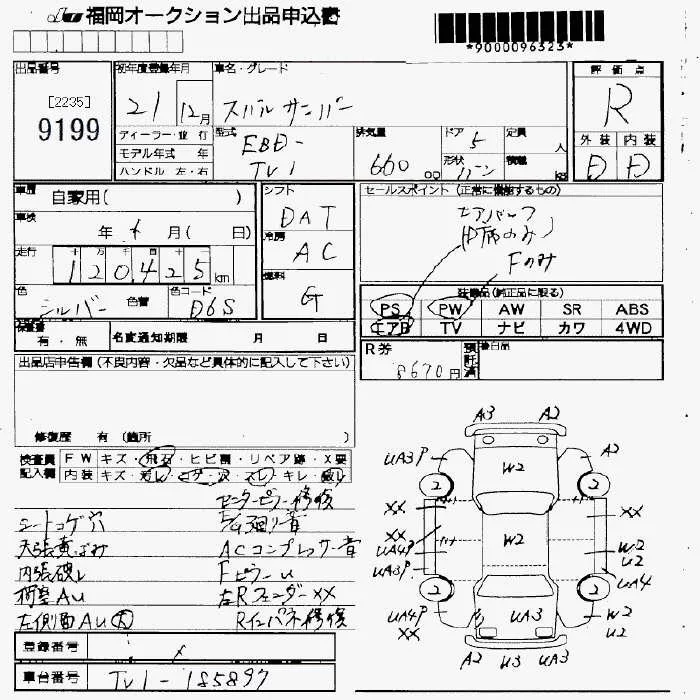 福岡オークション出品申込書
*9000096323*
出品番号
[2235]
9199
初年度登録年月
21 12月
車名・グレード
スバル サンバー
評価点
R
外装 内装
D D
ディーラー・並行
モデル年式 年
ハンドル 左・右
型式
EBD-
TV1
排気量
660 cc
ドア
5
形状
バン
定員
人
積載
kg
車歴
自家用( )
車検
年 月( 日)
走行
120,425 km
色
シルバー
色替
色コード
D6S
シフト
DAT
冷房
AC
燃料
G
セールスポイント (正常に機能するもの)
エアバッグ
Fのみ
装備品(純正品に限る)
PS PW AW SR ABS
エアB TV ナビ カワ 4WD
有・無
名変通知期限 月 日
R券
8670円
預託済
出品店申告欄 (不良内容・欠品など具体的に記入して下さい)
修復歴 有 (箇所
検査員
記入欄
FW キズ・飛石・ヒビ割・リペア跡・X要
内装 キズ・汚レ・コゲ・穴・スレ・キレ・破レ
センターピラー修復
シートコゲ穴
天張黄ばみ
ACコンプレッサー音
内張破レ
Fピラーu
AU
左Rフェンダー XX
左側面AU 大
Rインパネ修復
登録番号
車台番号
TV1-185897
A3 A2
UA3P W2 A2
2 2
XX XX
XX W2 W2
UA4P U2
UA3P UA4
2 2
UA4P UA3 W2
XX U2
A2 U3 UA3